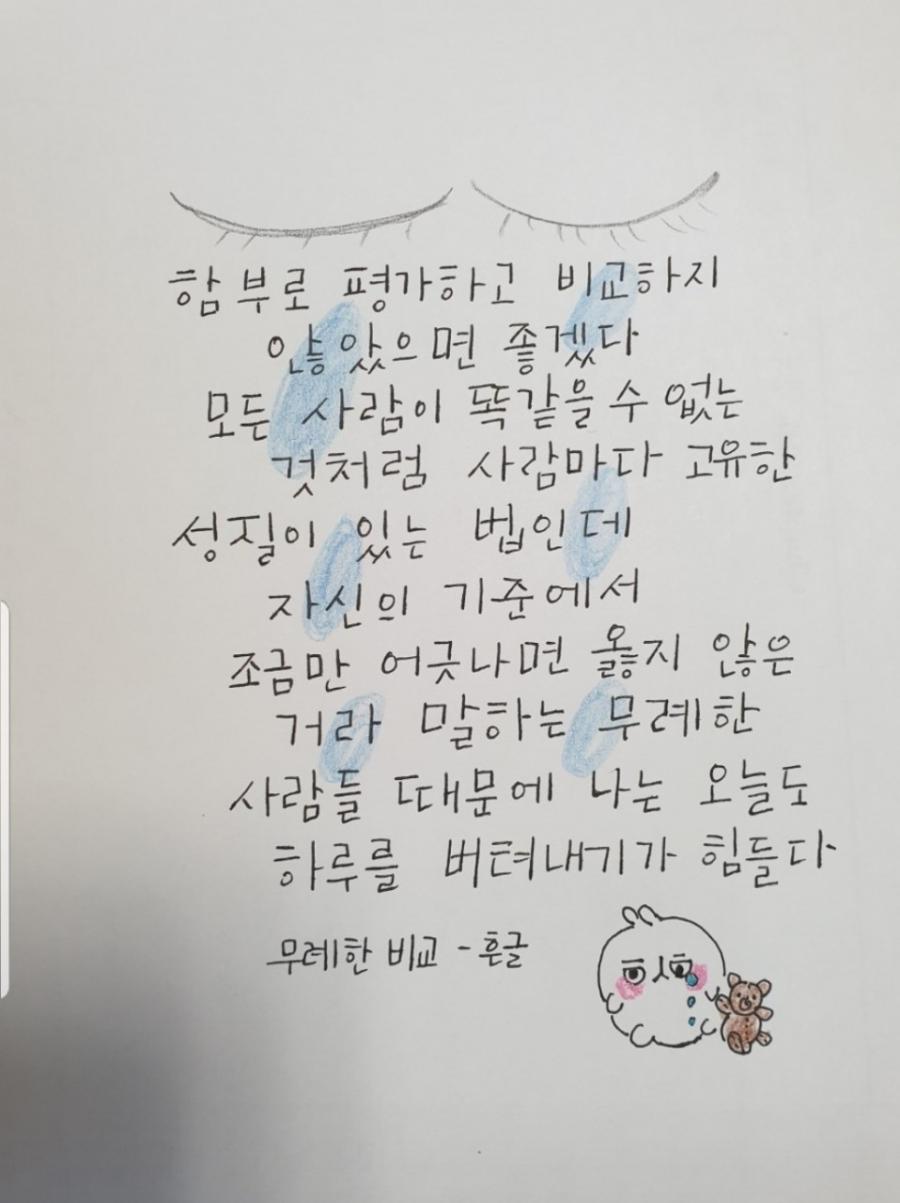 함부로 평가하고 비교하지
않았으면 좋겠다
모든 사람이 똑같을 수 없는
것처럼 사람마다 고유한
성질이 있는 법인데
자신의 기준에서
조금만 어긋나면 옳지 않은
거라 말하는 무례한
사람들 때문에 나는 오늘도
하루를 버텨내기가 힘들다
무례한 비교 - 흔글